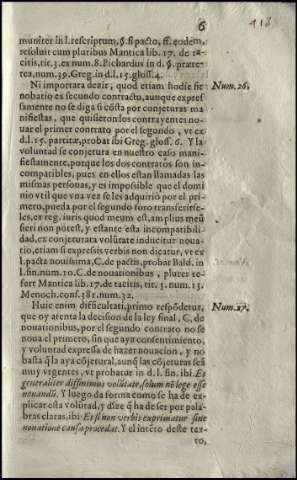 6
muniter in l. rescriptum, §. si pacto, ff. eodem,
resoluit cum pluribus Mantica lib. 17. de ta-
citis, tit. 3. ex num. 8. Pichardus in d. §. præte-
rea, num. 39. Greg. in d. l. 15. gloss. 4.
Ni importara dezir, quod etiam hodie fit Num. 26.
nobatio ex secundo contractu, aunque expres
samente no se diga si cõsta por conjeturas ma
nifiestas, que quisieron los contrayentes no-
uar el primer contrato por el segundo, vt ex
d. l. 15. partitæ, probat ibi Greg. gloss. 6. Y la
voluntad se conjetura en nuestro caso mani-
fiestamente, porque los dos contratos son in-
compatibles, pues en ellos estan llamadas las
mismas personas, y es imposible que el domi
nio vtil que vna vez se les adquiriò por el pri-
mero, pueda por el segundo fono transferirse-
les, ex reg. iuris quod meum est, amplius meũ
fieri non potest, y estante esta incompatibili-
dad, ex conjeturata volũtate inducitur noua-
tio, etiam si expressis verbis non dicatur, vt ex
l. pacta nouissima, C. de pactis, probat Bald. in
l. fin. num. 10. C. de nouationibus, plures re-
fert Mantica lib. 17. de tacitis, tit. 3. num. 13.
Menoch. cons. 381. num. 32.
Huic enim difficultati, primo respõdetur, Num. 27.
que oy atenta la decision de la ley final, C. de
nouationibus, por el segundo contrato no se
noua el primero, sin que aya consentimiento,
y voluntad expressa de hazer nouacion, y no
basta q̃ la aya cõjetural, aunq̃ las cõjeturas seã
muy vrgentes, vt probatur in d. l. fin. ibi: Et
generaliter diffinimus volũtate, solum nõ lege esse
nouandũ. Y luego da forma como se ha de ex-
plicar esta volũtad, y dize q̃ ha de ser por pala-
bras claras, ibi: Et si non verbis exprimatur sine
nouatione causa procedat. Y el intẽto deste tex-
to,